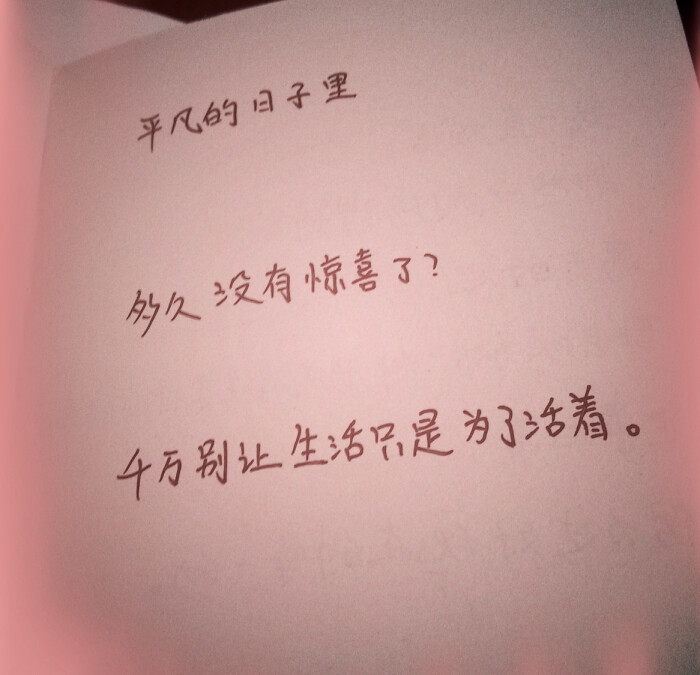 平凡的日子里
多久没有惊喜了?
千万别让生活只是为了活着。